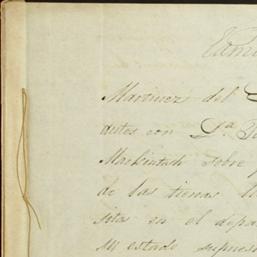 Martinez del
autos con D.ª
Mackintosh sobre
de las tierras
sitas en el depa
su estado supues